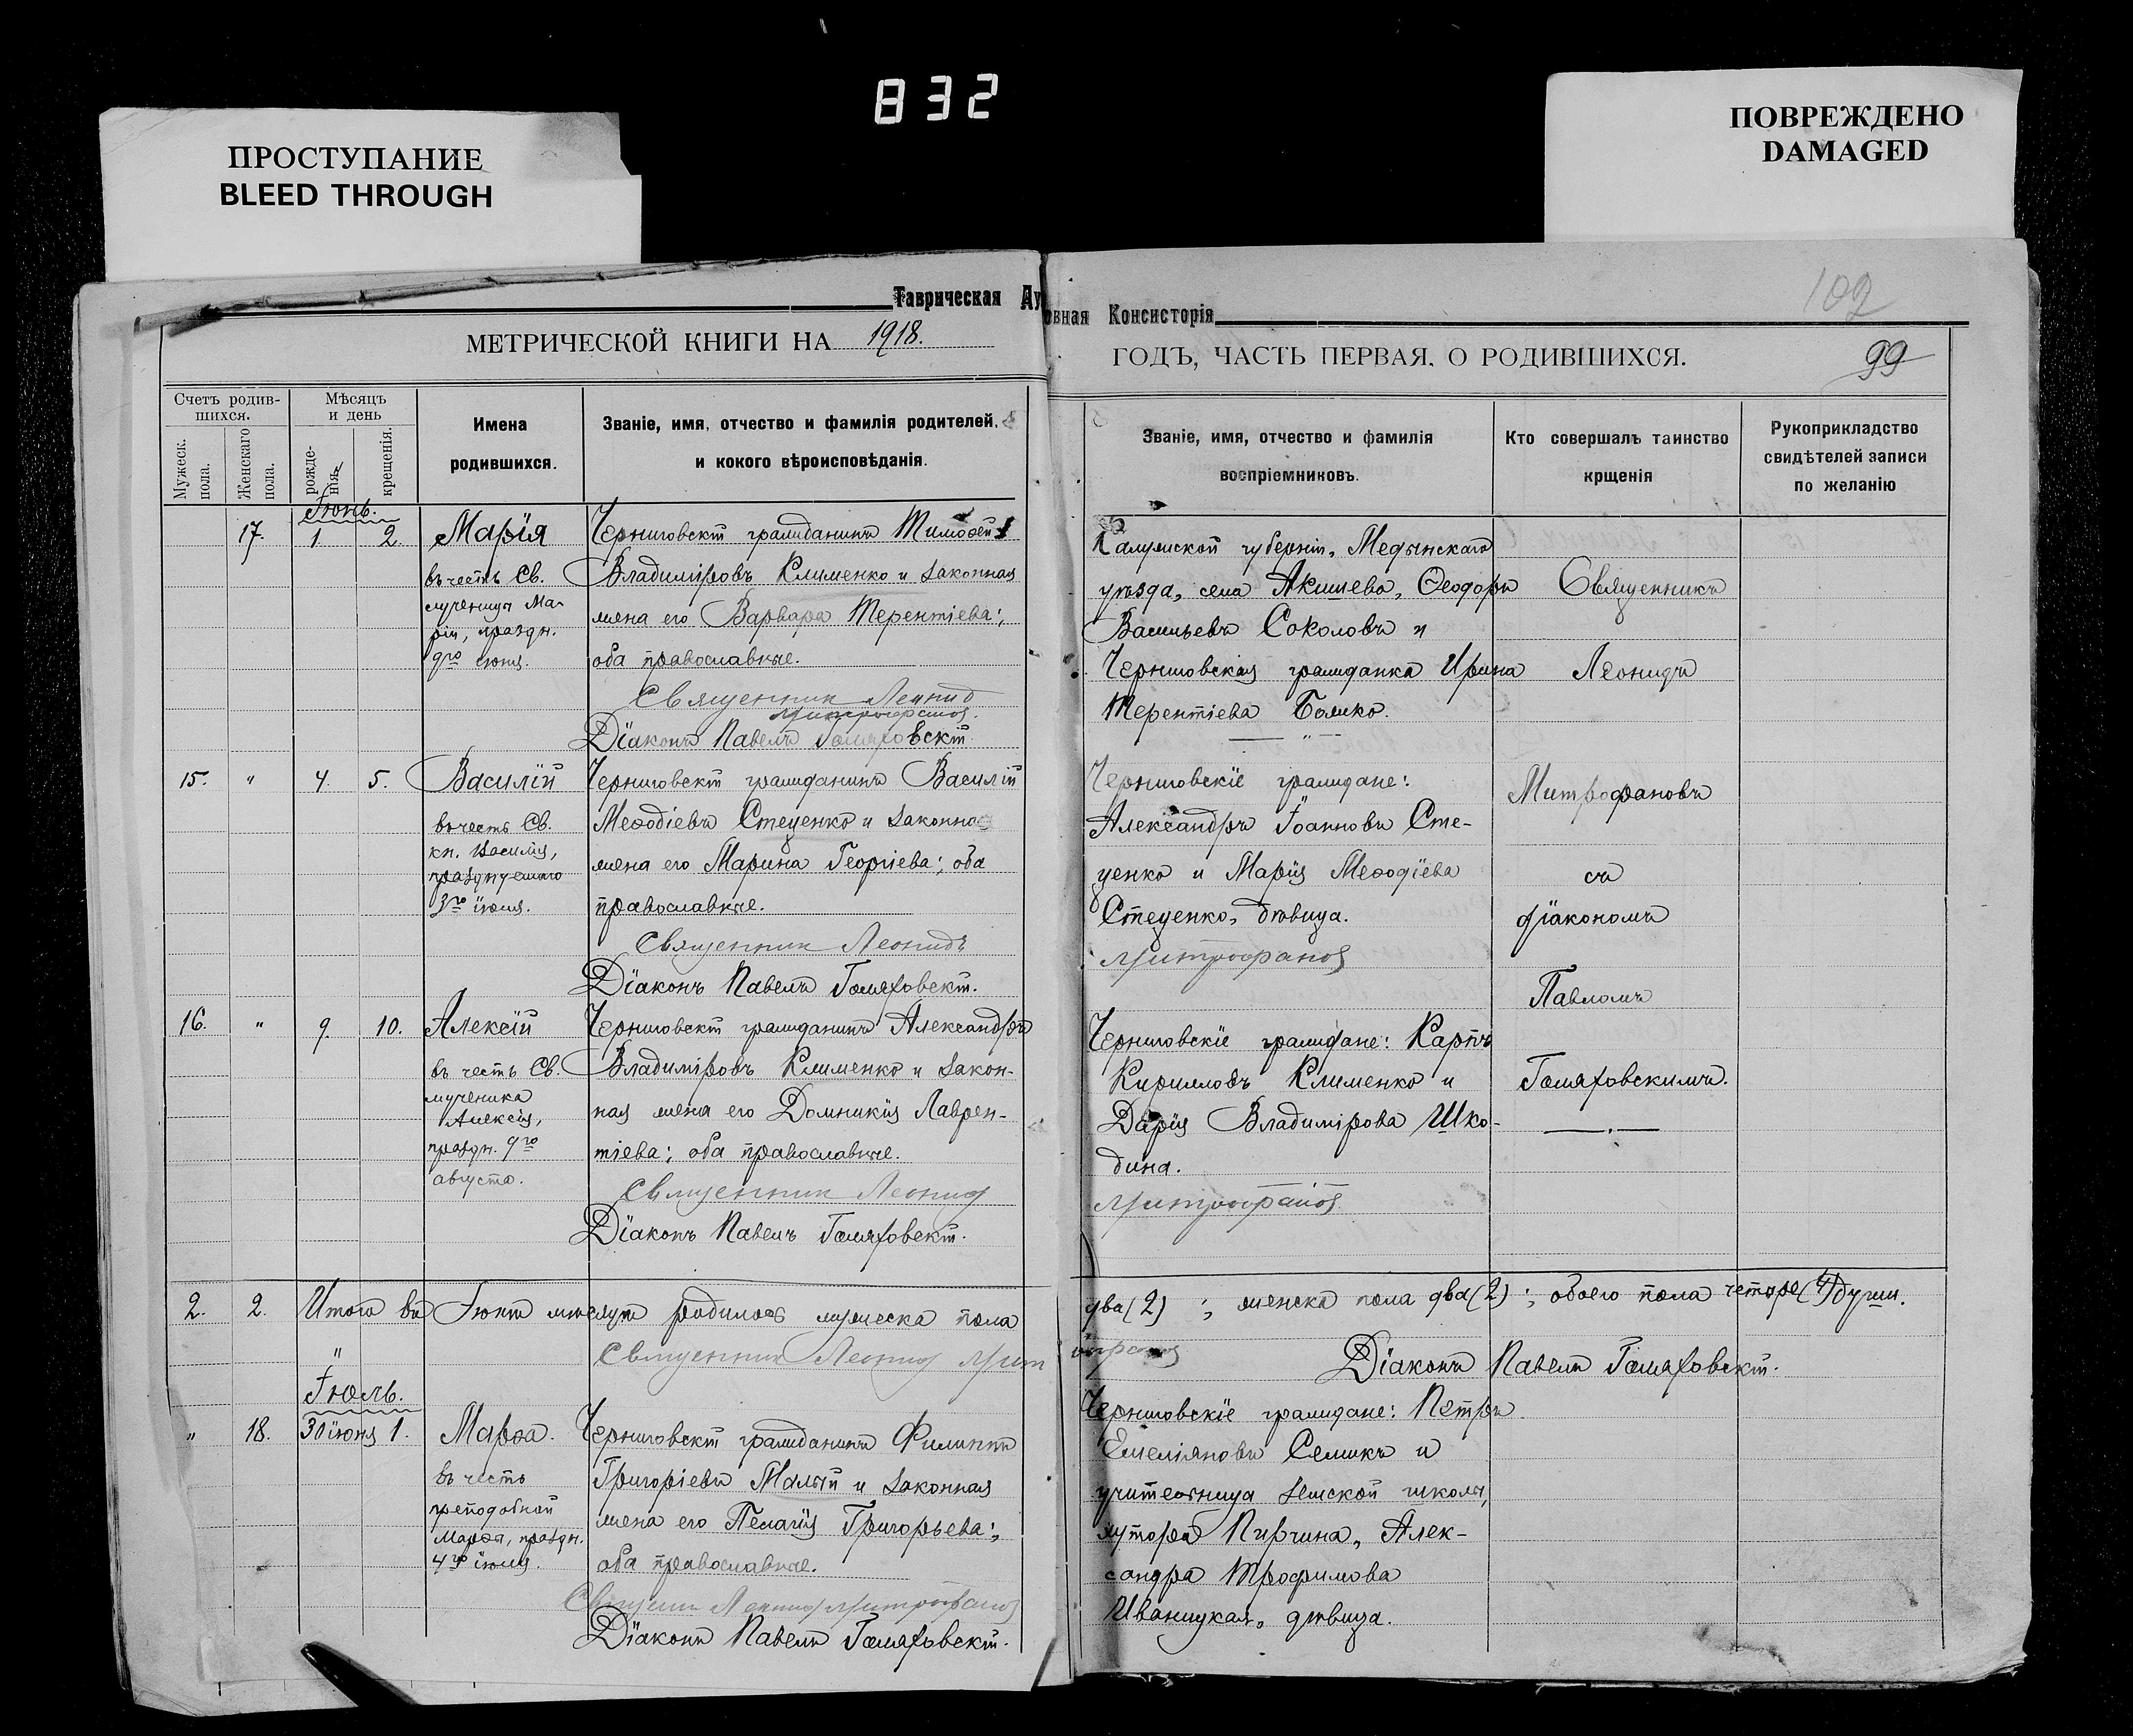 832
ПРОСТУПАНИЕ
BLEED THROUGH
ПОВРЕЖДЕНО
DAMAGED
Таврическая Ду
МЕТРИЧЕСКОЙ КНИГИ НА 1918.
Счетъ родив-
шихся.
Мужеск.
пола.
Женскаго
пола.
Мѣсяцъ
и день
рожде-
нія.
крещенія.
Имена
родившихся.
Званіе, имя, отчество и фамилія родителей,
и кокого вѣроисповѣданія.
Іюнь.
17. 1 2. Марія Черниговскій гражданинъ Тимоѳей
въ честь Св. Владиміровъ Клименко и законная
мученицы Ма- жена его Варвара Терентіева;
ріи, праздн. оба православные.
9го іюня.
Священник Леонид
Митрофанов.
Діаконъ Павелъ Голяховскій.
15. " 4. 5. Василій Черниговскій гражданинъ Василій
въ честь Св. Меѳодіевъ Стеценко и законная
кн. Василія, жена его Марина Георгіева; оба
празднуемаго
3го іюля. православные.
Священник Леонидъ
Діаконъ Павелъ Голяховскій.
16. " 9. 10. Алексій Черниговскій гражданинъ Александръ
въ честь Св. Владиміровъ Клименко и закон-
мученика ная жена его Домникія Лаврен-
Алексія,
праздн. 9го тіева; оба православные.
августа.
Священник Леонид
Діаконъ Павелъ Голяховскій.
2. 2. Итого въ Іюнѣ мѣсяцѣ родилось мужеска пола
" Священник Леонид Мит
Іюль.
" 18. 30 іюня 1. Марѳа. Черниговскій гражданинъ Филиппъ
въ честь Григоріевъ Малый и законная
преподобной жена его Пелагія Григорьева;
Марѳы, праздн.
4го іюля. оба православные.
Священник Леонид Митрофанов
Діаконъ Павелъ Голяховскій.
овная Консисторія
102
ГОДЪ, ЧАСТЬ ПЕРВАЯ, О РОДИВШИХСЯ.
99
Званіе, имя, отчество и фамилія
воспріемниковъ.
Кто совершалъ таинство
крщенія
Рукоприкладство
свидѣтелей записи
по желанію
Калужской губерніи, Медынскаго
уѣзда, села Акишева, Ѳеодоръ Священникъ
Васильевъ Соколовъ и
Черниговская гражданка Ирина Леонидъ
Терентіева Божко.
Черниговскіе граждане: Митрофановъ
Александръ Іоанновъ Сте-
ценко и Марія Меѳодіева съ
Стеценко, дѣвица. діакономъ
Митрофанов
Павломъ
Черниговскіе граждане: Карпъ
Кирилловъ Клименко и Голяховскимъ.
Дарія Владимірова Шко-
дина.
Митрофанов
два (2); женска пола два (2); обоего пола четыре (4) души.
рофанов
Діаконъ Павелъ Голяховскій.
Черниговскіе граждане: Петръ
Емеліяновъ Семикъ и
учительница земской школы,
хутора Пирчина, Алек-
сандра Трофимова
Иваницкая, дѣвица.